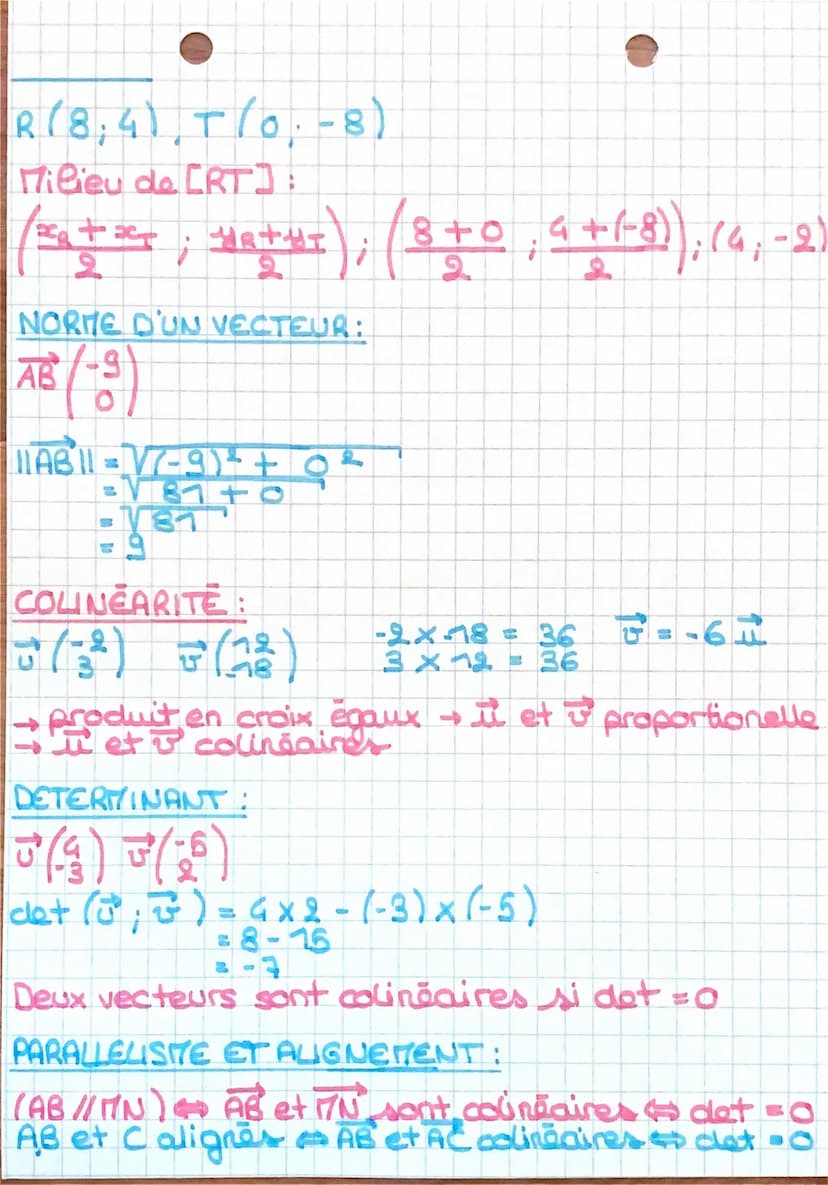 R(8;4), T(0;-8)
Milieu de [RT] :
((x_R + x_T)/2 ; (y_R + y_T)/2) ; ((8+0)/2 ; (4+(-8))/2) ; (4;-2)
NORME D'UN VECTEUR :
AB⃗ (-9
0)
||AB⃗|| = √((-9)² + 0²)
= √(81 + 0)
= √81
= 9
COLINÉARITÉ :
u⃗ (-2
3) v⃗ (12
-18) -2 x -18 = 36 v⃗ = -6 u⃗
3 x 12 = 36
→ produit en croix égaux → u⃗ et v⃗ proportionelle
→ u⃗ et v⃗ colinéaires
DETERMINANT :
u⃗ (4
-3) v⃗ (-5
2)
det (u⃗ ; v⃗) = 4 x 2 - (-3) x (-5)
= 8 - 15
= -7
Deux vecteurs sont colinéaires si det = 0
PARALLELISME ET ALIGNEMENT :
(AB // MN) ⇔ AB⃗ et MN⃗ sont colinéaires ⇔ det = 0
A,B et C alignés ⇔ AB⃗ et AC⃗ colinéaires ⇔ det = 0